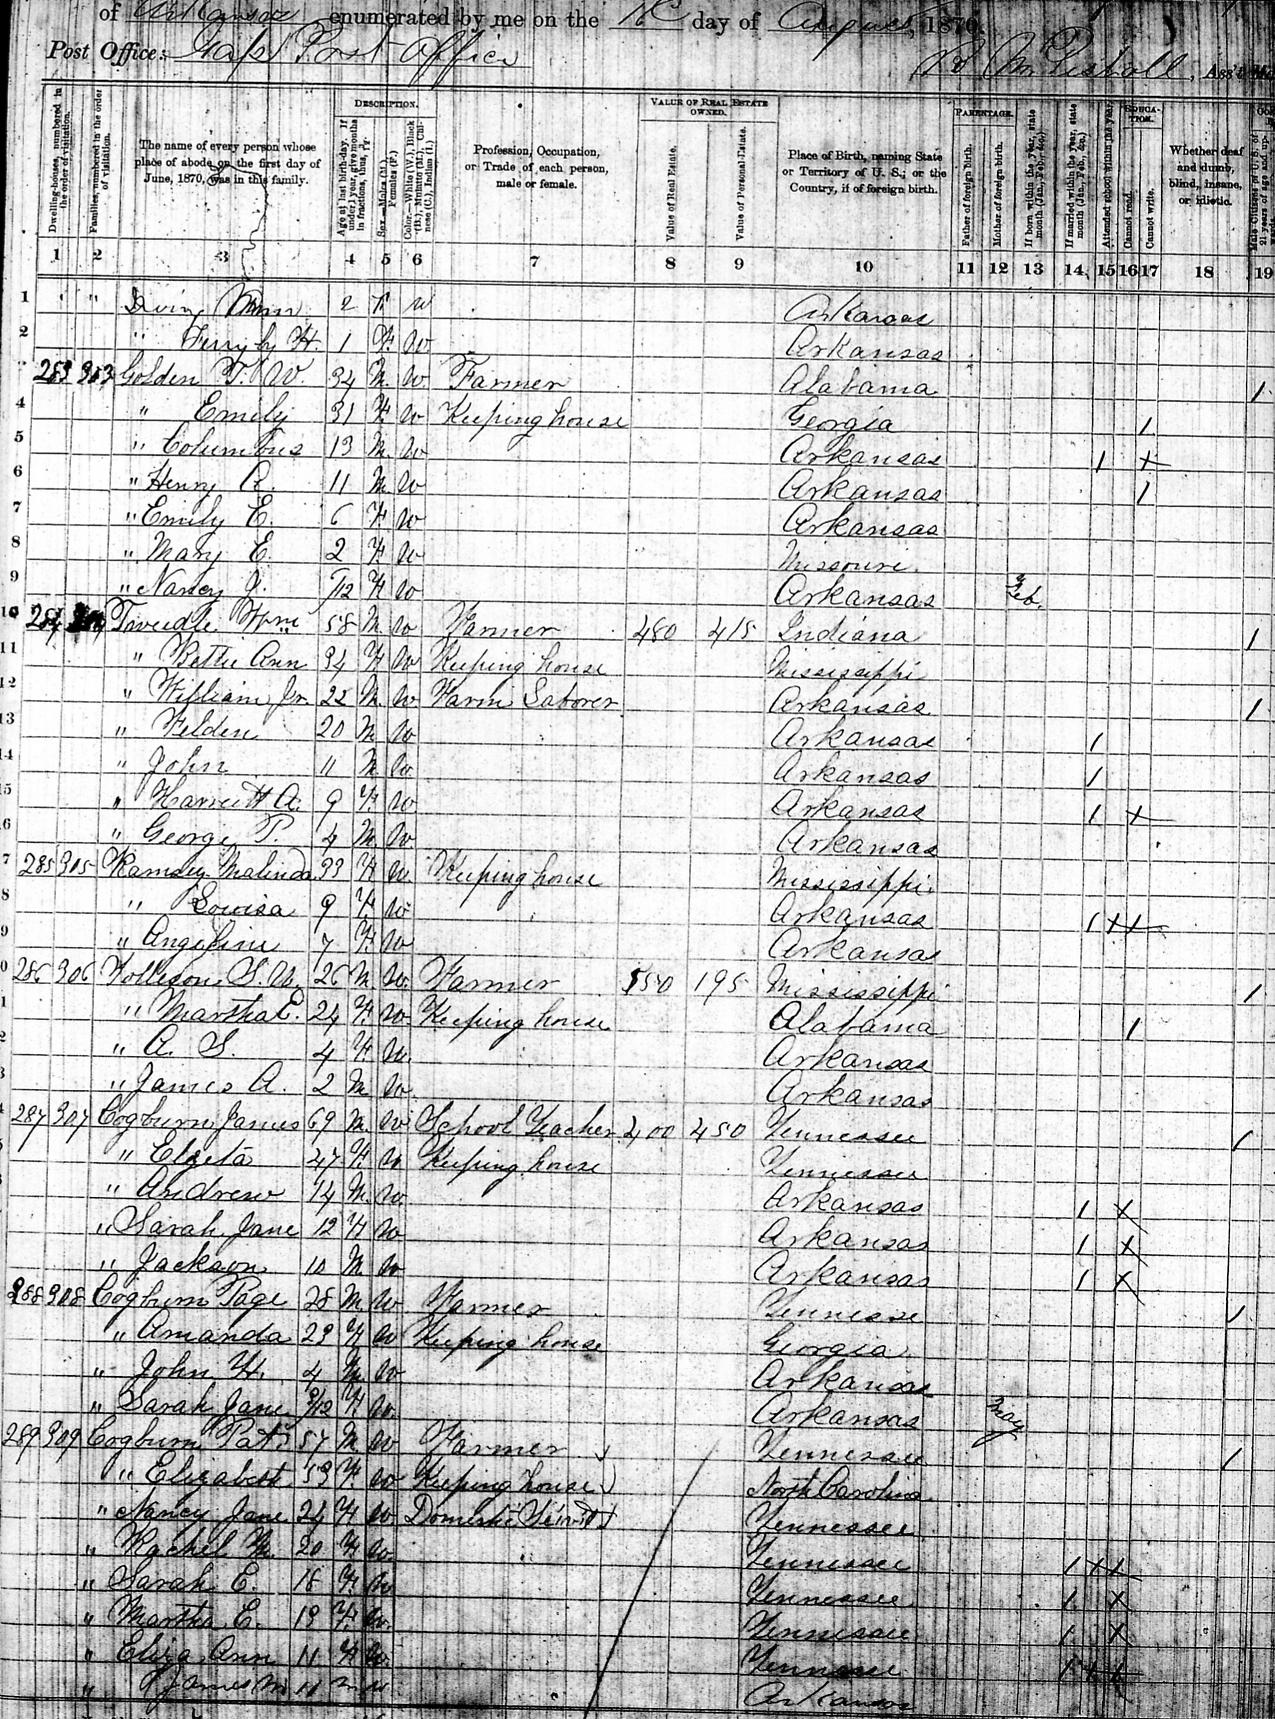 of Arkansas enumerated by me on the day of August, 1870.
Post Office: Gaps Post Office Ass't
DESCRIPTION. VALUE OF REAL ESTATE OWNED. PARENTAGE. EDUCATION.
Dwelling-houses, numbered in the order of visitation.
Families, numbered in the order of visitation.
The name of every person whose place of abode on the first day of June, 1870, was in this family.
Age at last birth-day. If under 1 year, give months in fractions, thus, 3/12.
Sex.—Males (M.), Females (F.)
Color.—White (W.), Black (B.), Mulatto (M.), Chinese (C.), Indian (I.)
Profession, Occupation, or Trade of each person, male or female.
Value of Real Estate.
Value of Personal Estate.
Place of Birth, naming State or Territory of U. S.; or the Country, if of foreign birth.
Father of foreign birth.
Mother of foreign birth.
If born within the year, state month (Jan., Feb., &c.)
If married within the year, state month (Jan., Feb., &c.)
Attended school within the year.
Cannot read.
Cannot write.
Whether deaf and dumb, blind, insane, or idiotic.
1 2 3 4 5 6 7 8 9 10 11 12 13 14 15 16 17 18 19
1 " " 2 F W Arkansas
2 " H. 1 F W Arkansas
283 303 Golden T. W. 34 M W Farmer Alabama 1
4 " Emily 31 F W Keeping house Georgia 1
5 " Columbus 13 M W Arkansas 1 +
6 " Henry A. 11 M W Arkansas 1
7 " Emily E. 6 F W Arkansas
8 " Mary E. 2 F W Missouri
9 " Nancy J. F W Arkansas Feb.
10 284 Tweedle Wm 58 M W Farmer 480 415 Indiana 1
11 " Bettie Ann 34 F W Keeping house Mississippi
12 " William Jr. 22 M W Farm Laborer Arkansas 1
13 " Felden 20 M W Arkansas 1
14 " John 11 M W Arkansas 1
15 " Harriett A. 9 F W Arkansas 1 +
6 " George P. 4 M W Arkansas
7 285 305 Ramsey Malinda 33 F W Keeping house Mississippi
8 " Louisa 9 F W Arkansas 1 + +
9 " Angeline 7 F W Arkansas
0 286 306 S. W. 26 M W Farmer 550 195 Mississippi 1
1 " Martha E. 24 F W Keeping house Alabama 1
2 " A. S. 4 F W Arkansas
3 " James A. 2 M W Arkansas
287 307 Cogburn James 69 M W School Teacher 400 450 Tennessee 1
" 47 F W Keeping house Tennessee
" Andrew 14 M W Arkansas 1 X
" Sarah Jane 12 F W Arkansas 1 X
" Jackson 10 M W Arkansas 1 X
288 308 Cogburn Page 28 M W Farmer Tennessee 1
" Amanda 23 F W Keeping house Georgia
" John H. 4 M W Arkansas
" Sarah Jane F W Arkansas May
289 309 Cogburn Pat 57 M W Farmer Tennessee 1
" Elizabeth 53 F W Keeping house North Carolina
" Nancy Jane 24 F W Domestic Servt Tennessee
" Rachel M. 20 F W Tennessee 1 + +
" Sarah E. F W Tennessee 1 X
" Martha E. 13 F W Tennessee 1 X
" Eliza Ann 11 F W Tennessee 1 + +
" James M 11 M W Arkansas